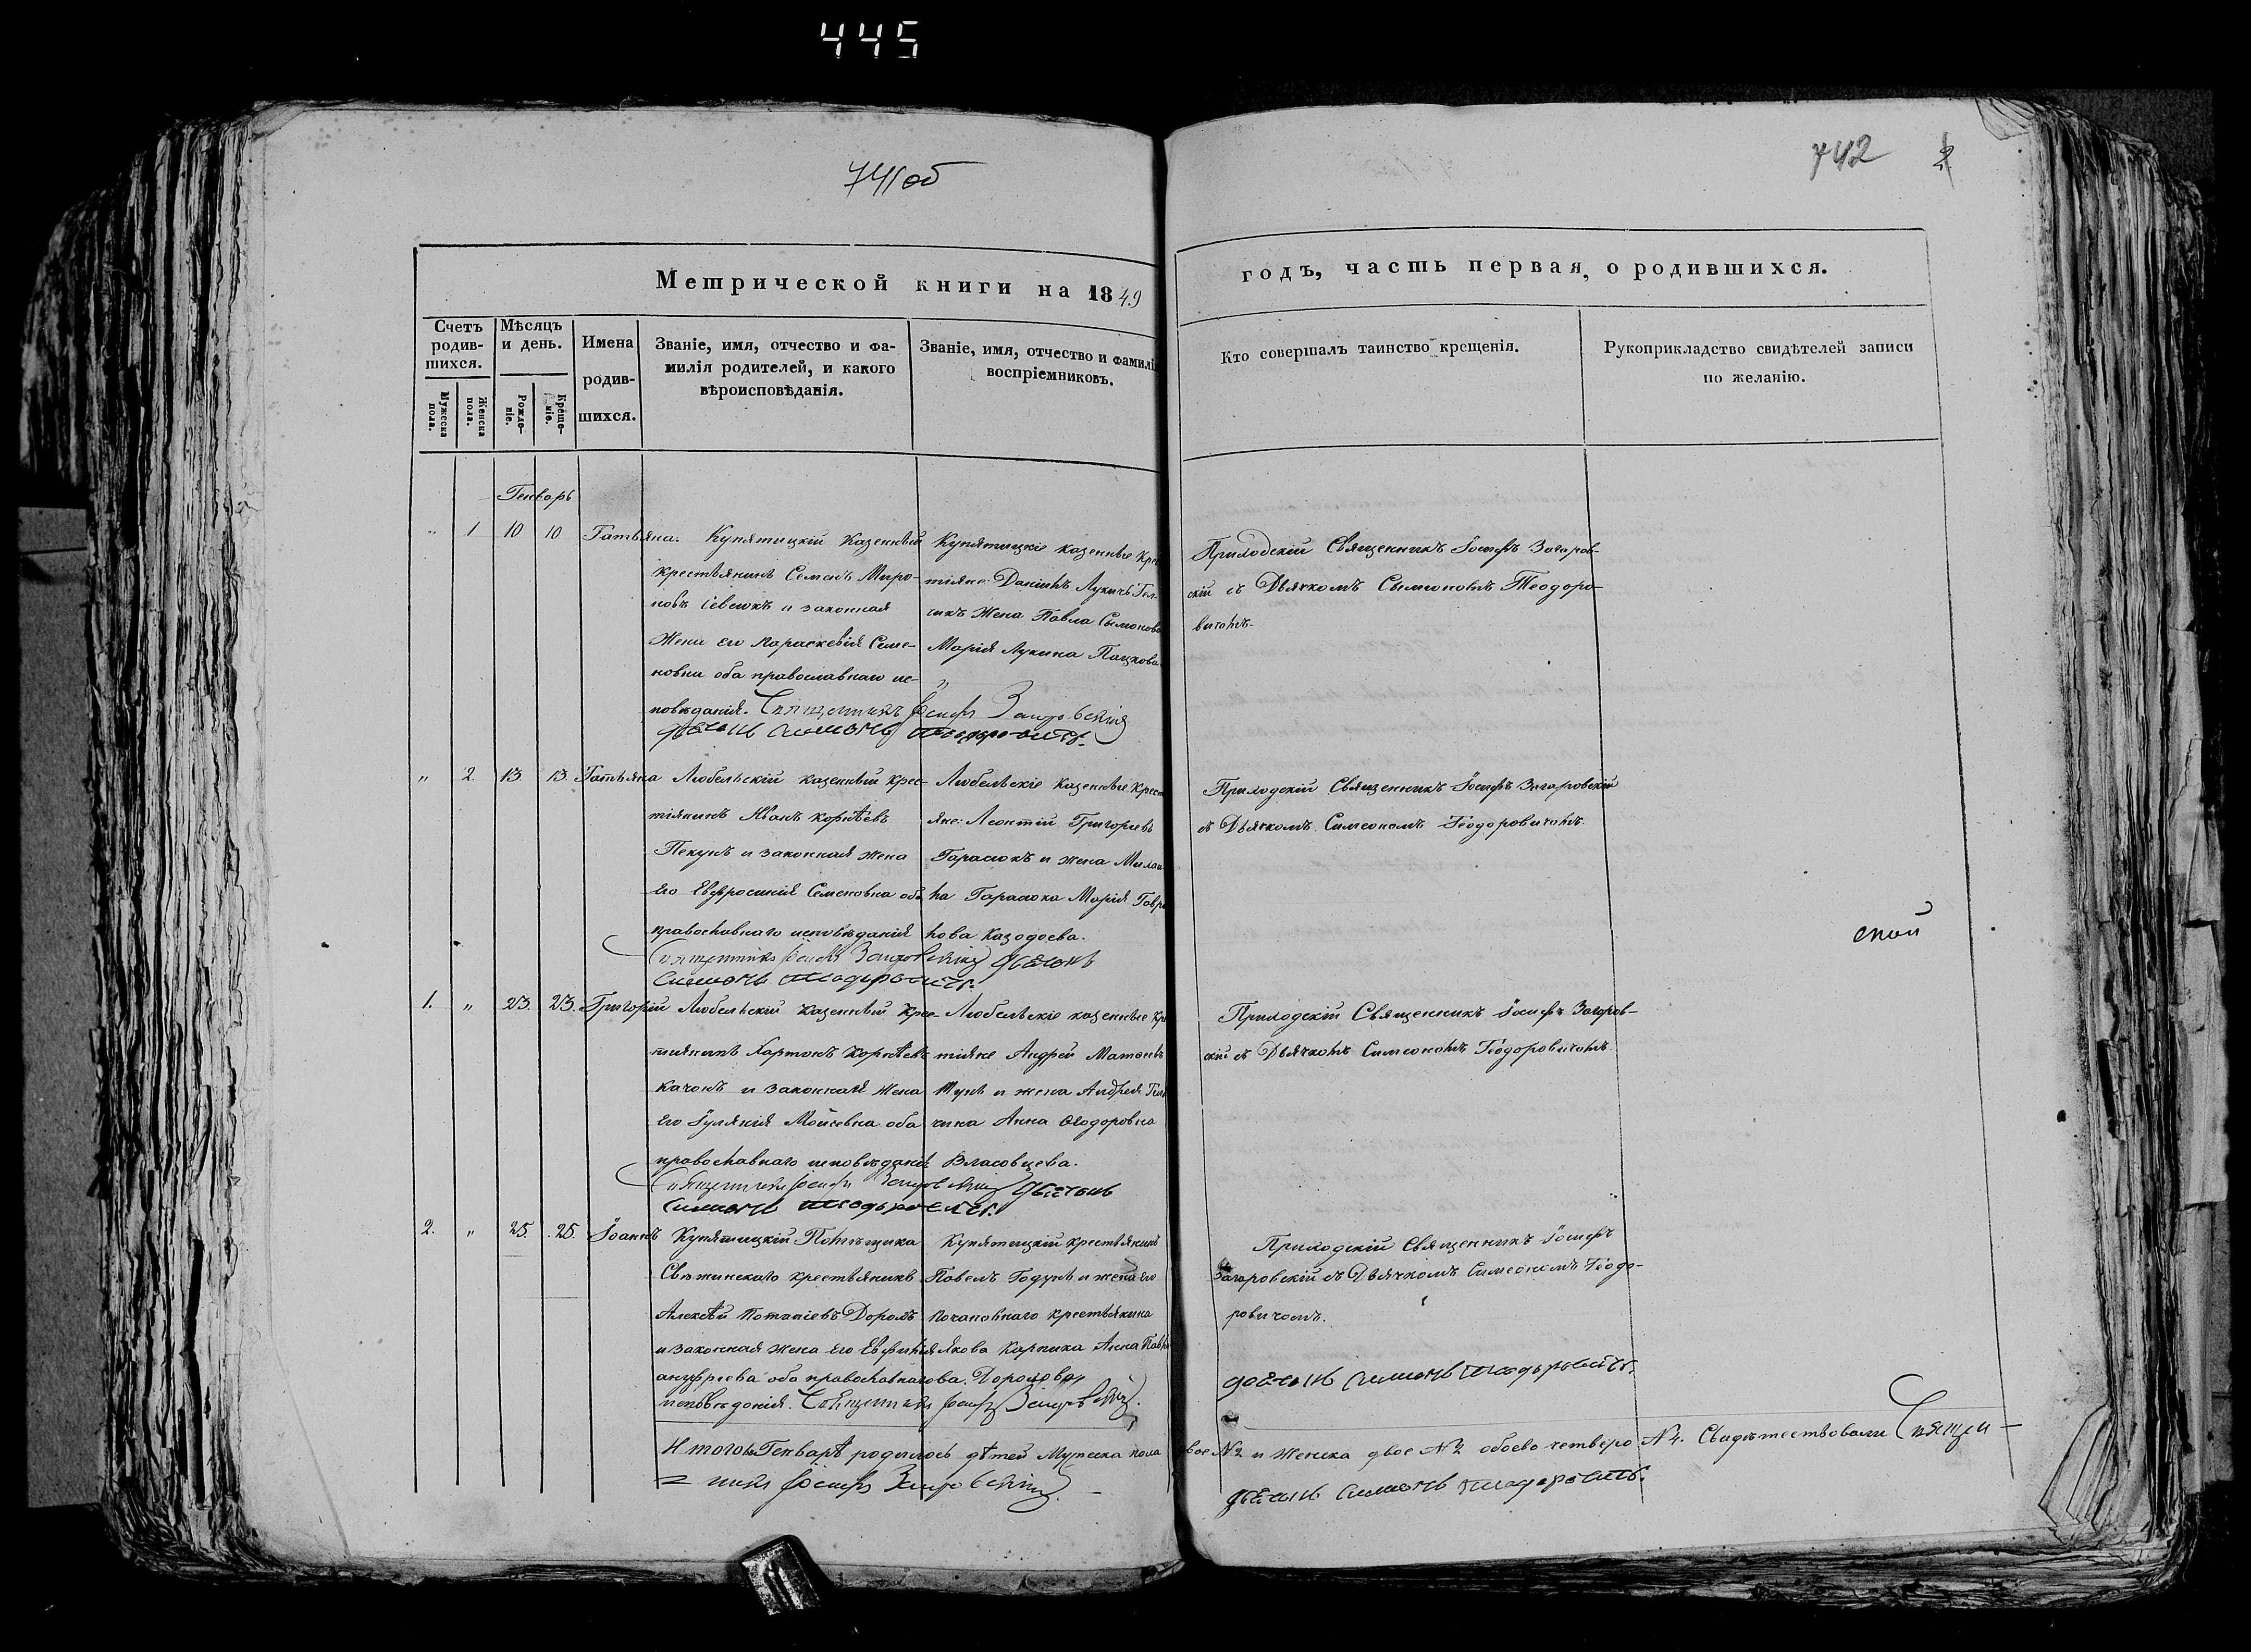 445
741об
742 2
Метрической книги на 1849
годъ, часть первая, о родившихся.
Счетъ родив-шихся.
Мужеска пола.
Женска пола.
Мѣсяцъ и день.
Рожде-ніе.
Креще-ніе.
Имена родив-шихся.
Званіе, имя, отчество и фа-
милія родителей, и какого
вѣроисповѣданія.
Званіе, имя, отчество и фамилі
воспріемниковъ.
Кто совершалъ таинство крещенія.
Рукоприкладство свидѣтелей записи
по желанію.
Генварь
" 1 10 10 Татьяна.
Купятицкій Казенный
крестьянинъ Семенъ Миро-
новъ и законная
Жена его Параскевія Семе-
новна оба православнаго ис-
повѣданія. Священникъ Іосифъ Загоровскій
Купятицкіе казенные Крес
тіяне: Даніилъ Лукичъ Гол-
чикъ Жена Павла Сымонова
Марія Лукина Пацкова
Приходскій Священникъ Іосифъ Загоров-
скій съ Дьячкомъ Сымеономъ Теодоро-
вичомъ.
" 2. 13 13 Татьяна
Любельскій казенный Крес-
тіянинъ Иванъ Корнѣевъ
Пекунъ и законная жена
его Евфросинія Семеновна оба
православнаго исповѣданія
Священникъ Іосифъ Загоровскій
Любельскіе Казенные Крест
яне: Леонтій Григорьевъ
Гарасюкъ и жена
на Гарасюка Марія Гавр
лова Казодоева.
Приходскій Священникъ Іосифъ Загоровскій
съ Дьячкомъ Симеономъ Теодоровичомъ.
спой
1. " 23. 23. Григорій
Любельскій Казенный Крес-
тиянинъ Харитонъ Корнѣевъ
Качонъ и законная Жена
Его Іулянія Мойсевна оба
православнаго исповѣданія
Священникъ Іосифъ Загоровскій
Любельскіе казенные Кр
тіяне Андрей Матѳеевъ
и жена Андрея Гол
чина Анна Ѳеодоровна
Власовцева.
Приходскій Священникъ Іосифъ Загоров-
скій съ Дьячкомъ Симеономъ Теодоровичомъ.
2. " 25. 25. Іоаннъ
Купятицкій Помѣщика
крестьянинъ
Алексѣй Потапіевъ Доромъ
и законная жена его Евфимія
ануфреева оба православнаго
исповѣданія. Священникъ Іосифъ Загоровскій.
Купятицкій крестьянинъ
Павелъ Годунъ и жена его
крестьянина
Якова Карпика Анна Павл
ова. Доромова
Приходскій Священникъ Іосифъ
Загоровскій съ Дьячкомъ Симеономъ Теодо-
ровичомъ.
Итого въ Генварѣ родилось дѣтей Мужеска пола двое №2 и Женска двое №2 обоего четверо №4. Свидѣтельствовали Священ-
никъ Іосифъ Загоровскій.